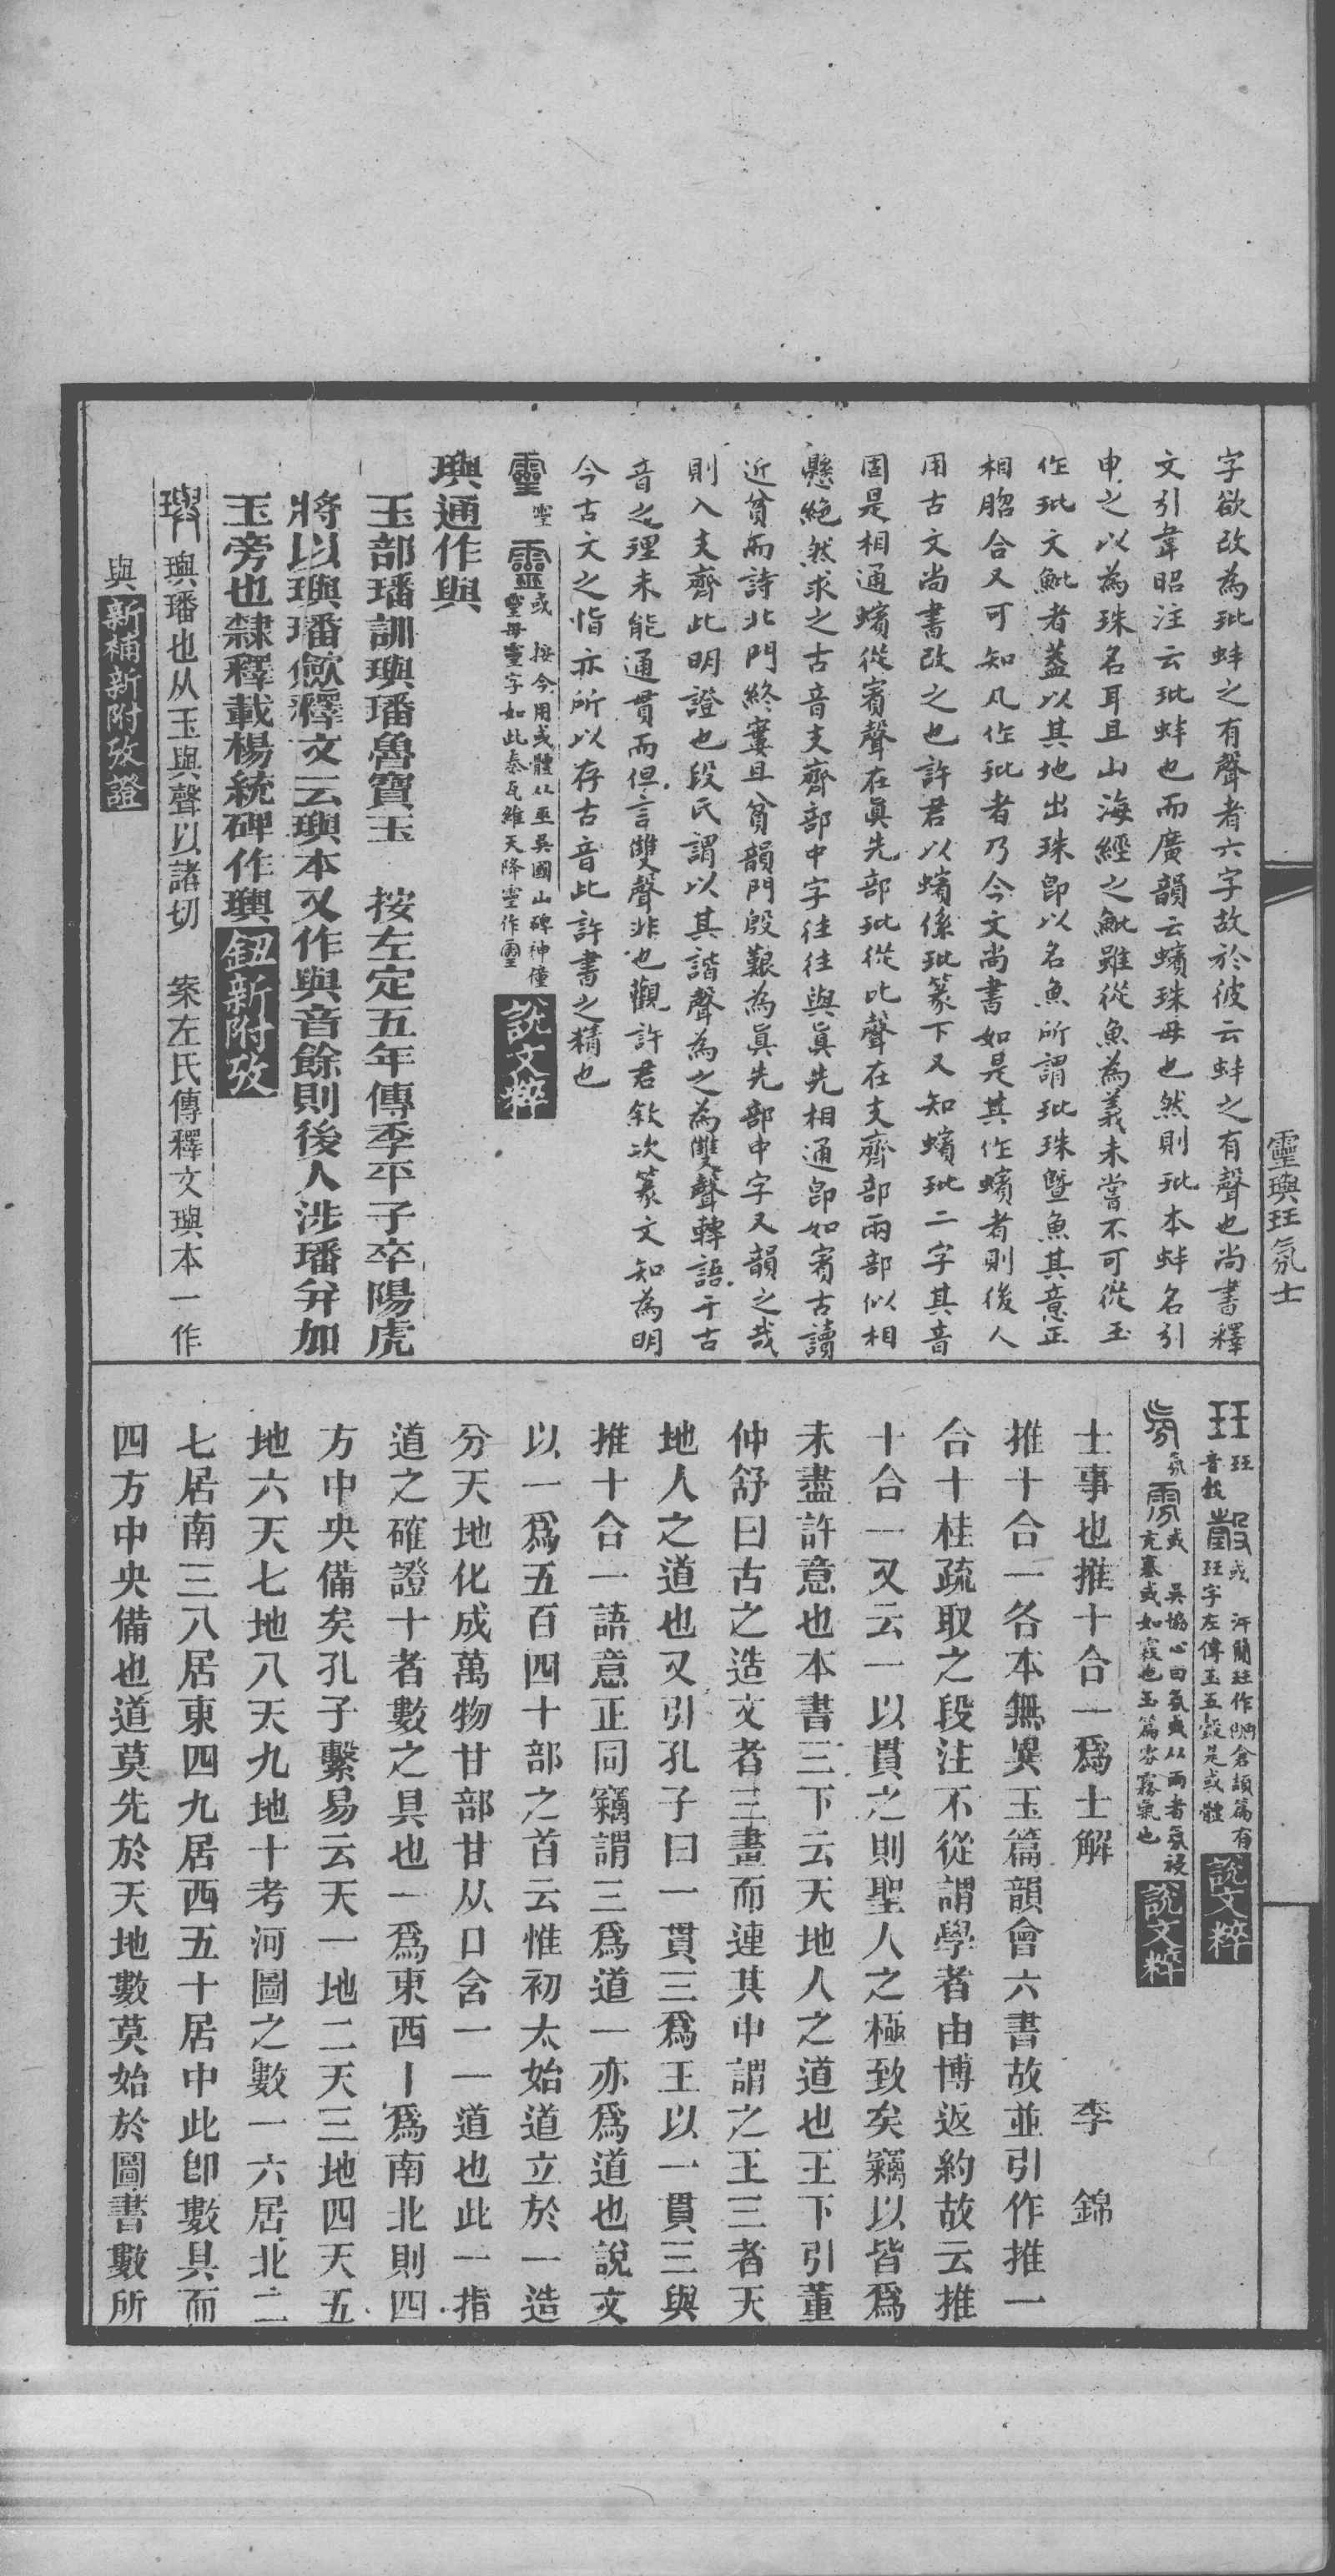 字欲改為玭蚌之有聲者六字故於彼云蚌之有聲也尚書釋
文引韋昭注云玭蚌也而廣韻云蠙珠母也然則玭本蚌名引
申之以為珠名耳且山海經之魮雖從魚為義未嘗不可從玉
作玭文魮者蓋以其地出珠卽以名魚所謂玭珠曁魚其意正
相脗合又可知凡作玭者乃今文尚書如是其作蠙者則後人
用古文尚書改之也許君以蠙係玭篆下又知蠙玭二字其音
固是相通蠙從賓聲在眞先部玭從比聲在支齊部兩部似相
懸絕然求之古音支齊部中字往往與眞先相通卽如賓古讀
近貧而詩北門終窶且貧韻門殷艱為眞先部中字又韻之哉
則入支齊此明證也段氏謂以其諧聲為之為雙聲轉語于古
音之理未能通貫而但言雙聲非也觀許君敘次篆文知為明
今古文之恉亦所以存古音此許書之精也
靈 靈 靈 或 按今用或體从巫吳國山碑神僮
靈母靈字如此秦瓦維天降靈作靈 說文粹
璵通作與
玉部璠訓璵璠魯寶玉 按左定五年傳季平子卒陽虎
將以璵璠斂釋文云璵本又作與音餘則後人涉璠弁加
玉旁也隸釋載楊統碑作璵 鈕新附攷
璵 璵璠也从玉與聲以諸切 案左氏傳釋文璵本一作
與 新補新附攷證
靈璵玨氛士
玨 玨 音㱿 瑴 或 汗簡玨作𤤴倉頡篇有
玨字左傳玉五瑴是或體 說文粹
氛 氛 雰 或 吳協心曰氛或从雨者氛祲
充塞或如霚也玉篇雰霧氣也 說文粹
士事也推十合一爲士解 李錦
推十合一各本無異玉篇韻會六書故並引作推一
合十桂疏取之段注不從謂學者由博返約故云推
十合一又云一以貫之則聖人之極致矣竊以皆爲
未盡許意也本書三下云天地人之道也王下引董
仲舒曰古之造文者三畫而連其中謂之王三者天
地人之道也又引孔子曰一貫三爲王以一貫三與
推十合一語意正同竊謂三爲道一亦爲道也說文
以一爲五百四十部之首云惟初太始道立於一造
分天地化成萬物甘部甘从口含一一道也此一指
道之確證十者數之具也一爲東西丨爲南北則四
方中央備矣孔子繫易云天一地二天三地四天五
地六天七地八天九地十考河圖之數一六居北二
七居南三八居東四九居西五十居中此卽數具而
四方中央備也道莫先於天地數莫始於圖書數所